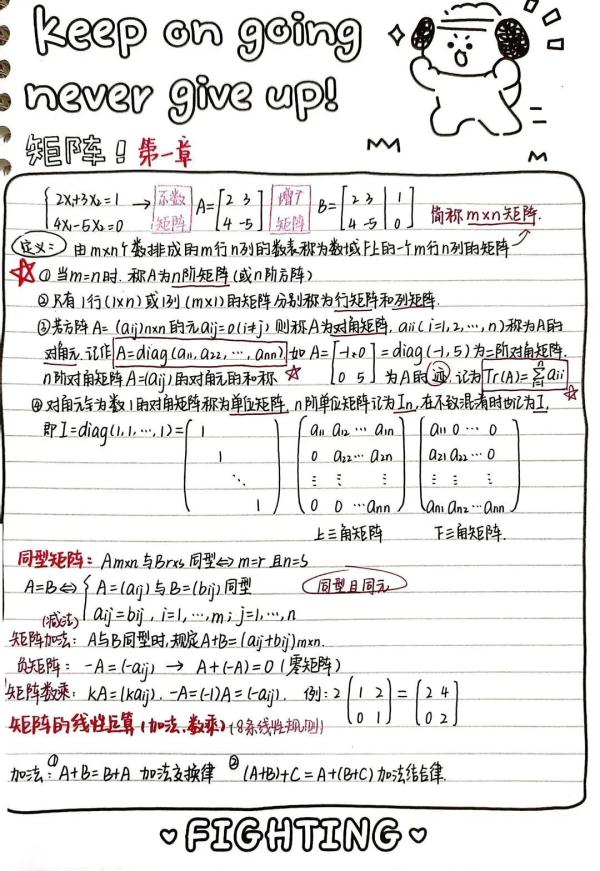 keep on going
never give up!
矩阵！第一章
{2x₁+3x₂=1 4x₁-5x₂=0 → 系数矩阵 A=[2 3; 4 -5] 增广矩阵 B=[2 3 | 1; 4 -5 | 0] 简称m×n矩阵.
定义：由m×n个数排成的m行n列的数表称为数域F上的一个m行n列的矩阵
☆①当m=n时. 称A为n阶矩阵(或n阶方阵)
②只有1行(1×n)或1列(m×1)的矩阵分别称为行矩阵和列矩阵.
③若方阵A=(aij)n×n的元aij=0(i≠j)则称A为对角矩阵, aii(i=1,2,…,n)称为A的
对角元. 记作 A=diag(a₁₁,a₂₂,…,ann) 如A=[-1 0; 0 5]=diag(-1,5)为二阶对角矩阵.
n阶对角矩阵A=(aij)的对角元的和称☆为A的迹. 记为Tr(A)=Σⁿᵢ₌₁aii
④对角元全为数1的对角矩阵称为单位矩阵, n阶单位矩阵记为In, 在不致混淆时也记为I,
即I=diag(1,1,…,1)=(1 1 ⋱ 1) (a₁₁ a₁₂ … a₁n; 0 a₂₂ … a₂n; ⋮ ⋮ ⋮; 0 0 … ann) (a₁₁ 0 … 0; a₂₁ a₂₂ … 0; ⋮ ⋮ ⋮; an₁ an₂ … ann)
上三角矩阵 下三角矩阵.
同型矩阵：Am×n与Br×s同型⇔m=r且n=s
A=B⇔{A=(aij)与B=(bij)同型 同型且同元
aij=bij, i=1,…,m; j=1,…,n
(减法)
矩阵加法：A与B同型时, 规定A+B=(aij+bij)m×n.
负矩阵：-A=(-aij) → A+(-A)=0(零矩阵)
矩阵数乘：kA=(kaij). -A=(-1)A=(-aij). 例：2(1 2; 0 1)=[2 4; 0 2]
矩阵的线性运算(加法、数乘)(8条线性规则)
加法：①A+B=B+A 加法交换律 ②(A+B)+C=A+(B+C)加法结合律.
FIGHTING